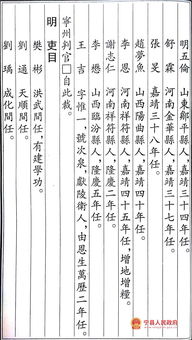 明五倫 山東鄒縣人,嘉靖三十四年任。
舒霖 河南金華縣人,嘉靖三十七年任。
張旻 嘉靖三十八年任。
趙夢魚 山西陽曲縣人,嘉靖四十年任。
李恩 河南祥符縣人,嘉靖四十五年任,增地增糧。
謝志仁 河南祥符縣人,隆慶二年任。
李懋 山西臨汾縣人,隆慶五年任。
王吉 字惟一,號次泉,獻陵衛人,由恩生萬歷二年任。
寧州判官□自此裁。
明 吏目
樊彬 洪武間任,有建學功。
劉通 天順間任。
劉瑀 成化間任。
宁县人民政府